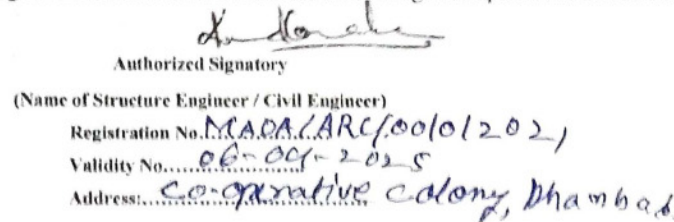 Authorized Signatory
(Name of Structure Engineer / Civil Engineer)
Registration No. MADA/ARC/0010/2021
Validity No....... 06-09-2025
Address:..... Co-operative Colony, Dhanbad